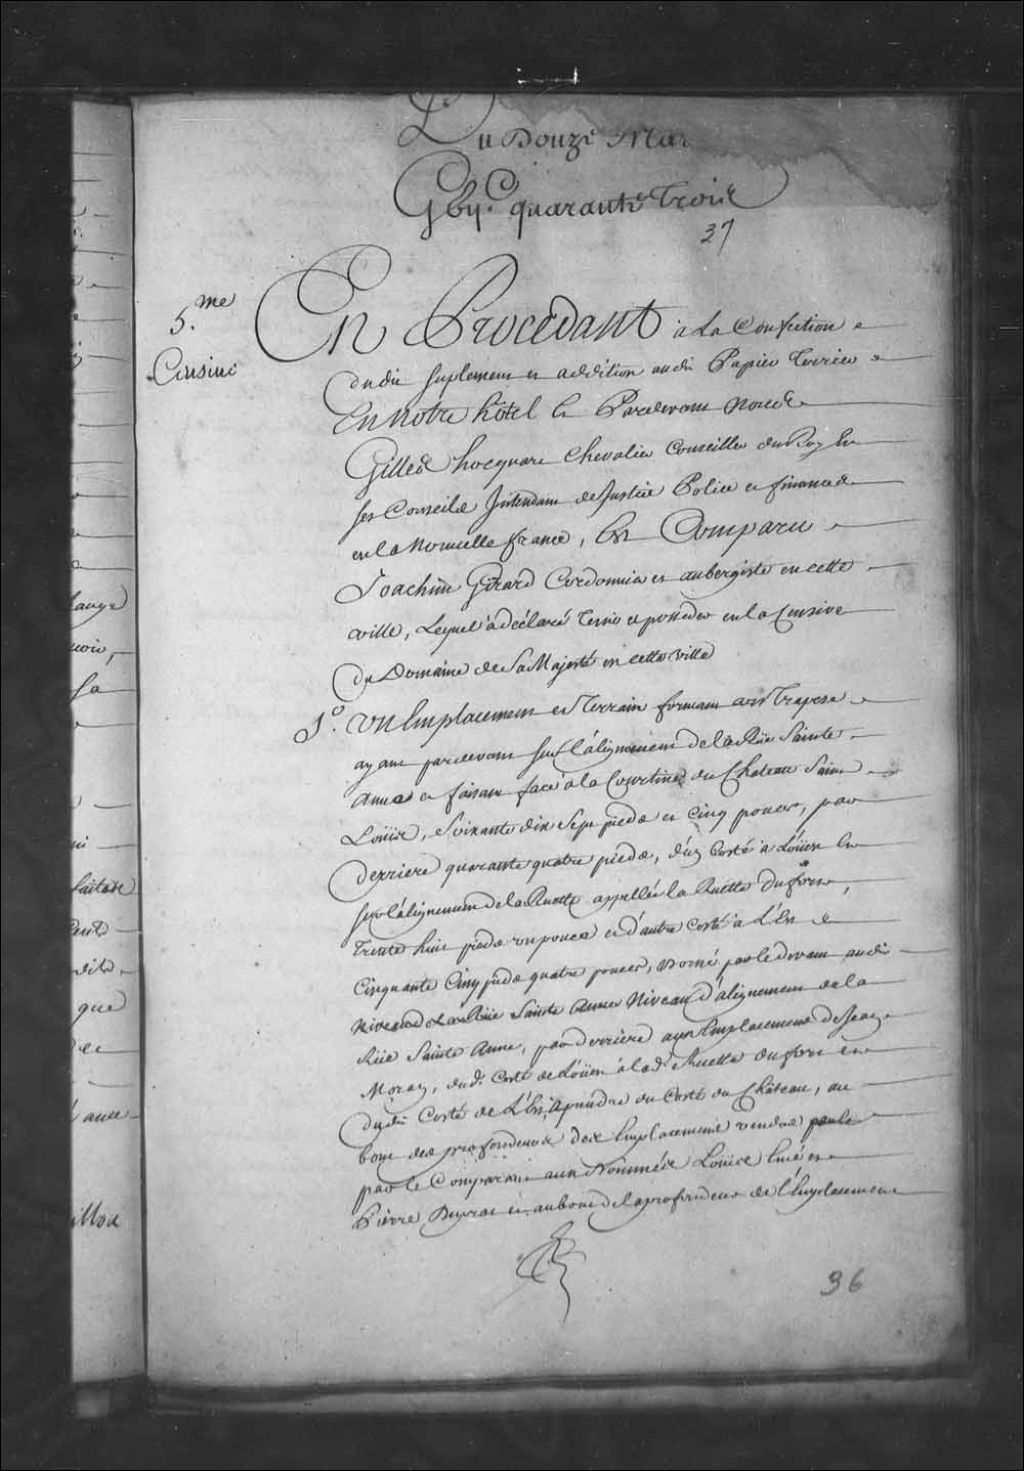 Du Douze Mar
Gbye. quarante Trois
37
5.me
Censive
En Procedant à la Confection
dudit suplement et addition audit Papier Terrier
En notre hôtel Et Pardevant Nous
Gilles hocquart Chevalier Conseiller du Roy En
ses Conseils Intendant de Justice Police et finances
en la Nouvelle france, Est Comparu
Joachim Girard Cordonnier et aubergiste en cette
ville, Lequel a déclaré Tenir et posseder en la Censive
Du Domaine de Sa Majesté en cette ville
1o. Un Emplacement et Terrain formant un Trapese
ayant par devant sur l'alignement de la Rüe Sainte
Anne et faisant face à la Courtine du Chateau Saint
Loüis, Soixante dix Sept pieds et Cinq pouces, par
Derriere quarante quatre pieds, d'un Costé à Loüest
sur l'alignement de la Ruette appellée la Ruette du fort,
Trente huit pieds un pouce et d'autre Costé à L'Est
Cinquante Cinq pieds quatre pouces, borné par le devant audit
Niveau de la Rüe Sainte Anne Niveau d'alignement de la
Rüe Sainte Anne, par derriere aux Emplacement de Jean
Moran, dud. Costé de Loüest à lad. Ruette du fort et
Dudit Costé de L'Est, à prendre du Costé du Château, au
bout des profondeurs des Emplacements vendus
par le Comparant aux Nommés Loüis et
Pierre et au bout de la profondeur de l'Emplacement
36
lange
sa
que
ance